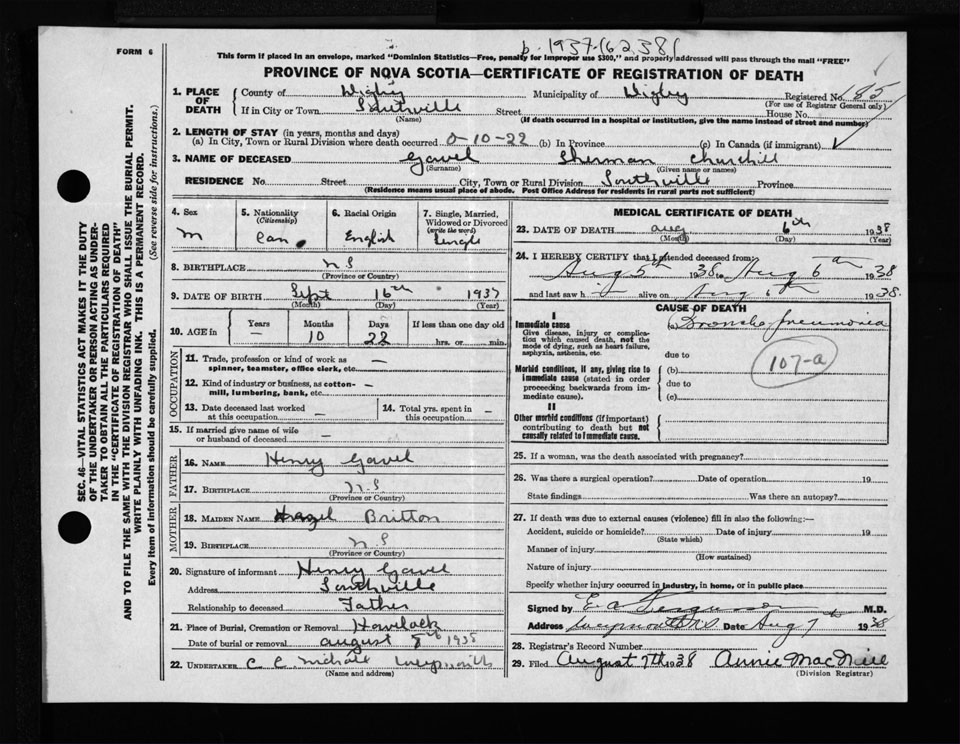 FORM 6
p. 1937-(62381
This form if placed in an envelope, marked "Dominion Statistics—Free, penalty for improper use $300," and properly addressed will pass through the mail "FREE"
PROVINCE OF NOVA SCOTIA—CERTIFICATE OF REGISTRATION OF DEATH
1. PLACE OF DEATH County of Digby Municipality of Digby Registered No. 185
(For use of Registrar General only)
If in City or Town Southville Street House No.
(Name) (If death occurred in a hospital or institution, give the name instead of street and number)
2. LENGTH OF STAY (in years, months and days)
(a) In City, Town or Rural Division where death occurred 0-10-22 (b) In Province (c) In Canada (if immigrant)
3. NAME OF DECEASED Gavel Sherman Churchill
(Surname) (Given name or names)
RESIDENCE No. Street City, Town or Rural Division Southville Province
(Residence means usual place of abode. Post Office Address for residents in rural parts not sufficient)
4. Sex 5. Nationality (Citizenship) 6. Racial Origin 7. Single, Married, Widowed or Divorced (write the word)
M Can. English Single
8. BIRTHPLACE N S
(Province or Country)
9. DATE OF BIRTH Sept 16th 1937
(Month) (Day) (Year)
10. AGE in Years Months Days If less than one day old
— 10 22 hrs. or min.
OCCUPATION
11. Trade, profession or kind of work as spinner, teamster, office clerk, etc. —
12. Kind of industry or business, as cotton-mill, lumbering, bank, etc. —
13. Date deceased last worked at this occupation — 14. Total yrs. spent in this occupation —
15. If married give name of wife or husband of deceased —
FATHER
16. NAME Henry Gavel
17. BIRTHPLACE N.S
(Province or Country)
MOTHER
18. MAIDEN NAME Hazel Britton
19. BIRTHPLACE N S
(Province or Country)
20. Signature of informant Henry Gavel
Address Southville
Relationship to deceased Father
21. Place of Burial, Cremation or Removal Havelock
Date of burial or removal August 8th 1938
22. UNDERTAKER C C Weymouth
(Name and address)
MEDICAL CERTIFICATE OF DEATH
23. DATE OF DEATH Aug 6th 1938
(Month) (Day) (Year)
24. I HEREBY CERTIFY that I attended deceased from:
Aug 5th 1938 to Aug 6th 1938
and last saw h i alive on Aug 6th 1938.
CAUSE OF DEATH
I
Immediate cause Broncho pneumonia
Give disease, injury or complication which caused death, not the mode of dying, such as heart failure, asphyxia, asthenia, etc.
due to
107-a
Morbid conditions, if any, giving rise to immediate cause (stated in order proceeding backwards from immediate cause).
(b)
due to
(c)
II
Other morbid conditions (if important) contributing to death but not causally related to immediate cause.
25. If a woman, was the death associated with pregnancy?
26. Was there a surgical operation? Date of operation 19
State findings Was there an autopsy?
27. If death was due to external causes (violence) fill in also the following:—
Accident, suicide or homicide? Date of injury 19
(State which)
Manner of injury
(How sustained)
Nature of injury
Specify whether injury occurred in industry, in home, or in public place
Signed by E. A. Ferguson M.D.
Address Weymouth N.S. Date Aug 7th 1938
28. Registrar's Record Number
29. Filed August 7th 1938 Annie MacNeill
(Division Registrar)
SEC. 46—VITAL STATISTICS ACT MAKES IT THE DUTY
OF THE UNDERTAKER OR PERSON ACTING AS UNDER-
TAKER TO OBTAIN ALL THE PARTICULARS REQUIRED
IN THE "CERTIFICATE OF REGISTRATION OF DEATH"
AND TO FILE THE SAME WITH THE DIVISION REGISTRAR WHO SHALL ISSUE THE BURIAL PERMIT.
WRITE PLAINLY WITH UNFADING INK. THIS IS A PERMANENT RECORD.
Every item of information should be carefully supplied. (See reverse side for instructions.)